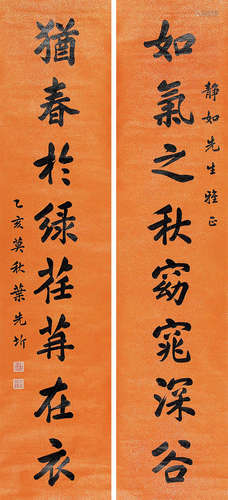 靜如先生雅正
如氣之秋窈窕深谷
猶春於緑荏苒在衣
乙亥莫秋葉先圻